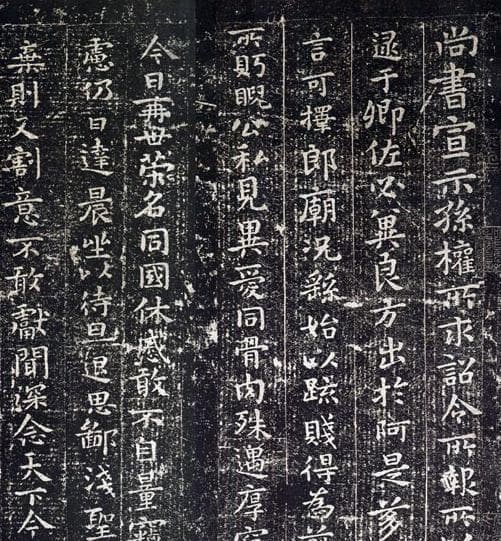 尚書宣示孫權所求詔令所報所以
逮于卿佐必冀良方出於阿是芻
言可擇郎廟況繇始以疏賤得為
所盱睨公私見異愛同骨肉殊遇厚
今日再世榮名同國休慼敢不自量竊
慮仍日達晨坐以待旦退思鄙淺聖
棄則又割意不敢獻聞深念天下今